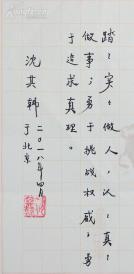 踏踏实实做人，认认真真
做事；勇于挑战权威，勇
于追求真理。
沈其韩
二〇一八年四月
于北京